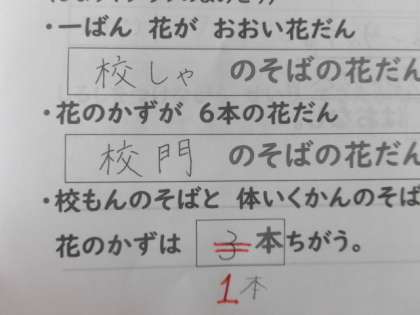 ・一ばん 花が おおい花だん
校しゃ のそばの花だん
・花のかずが 6本の花だん
校門 のそばの花だん
・校もんのそばと 体いくかんのそば
花のかずは 3本ちがう。
1本